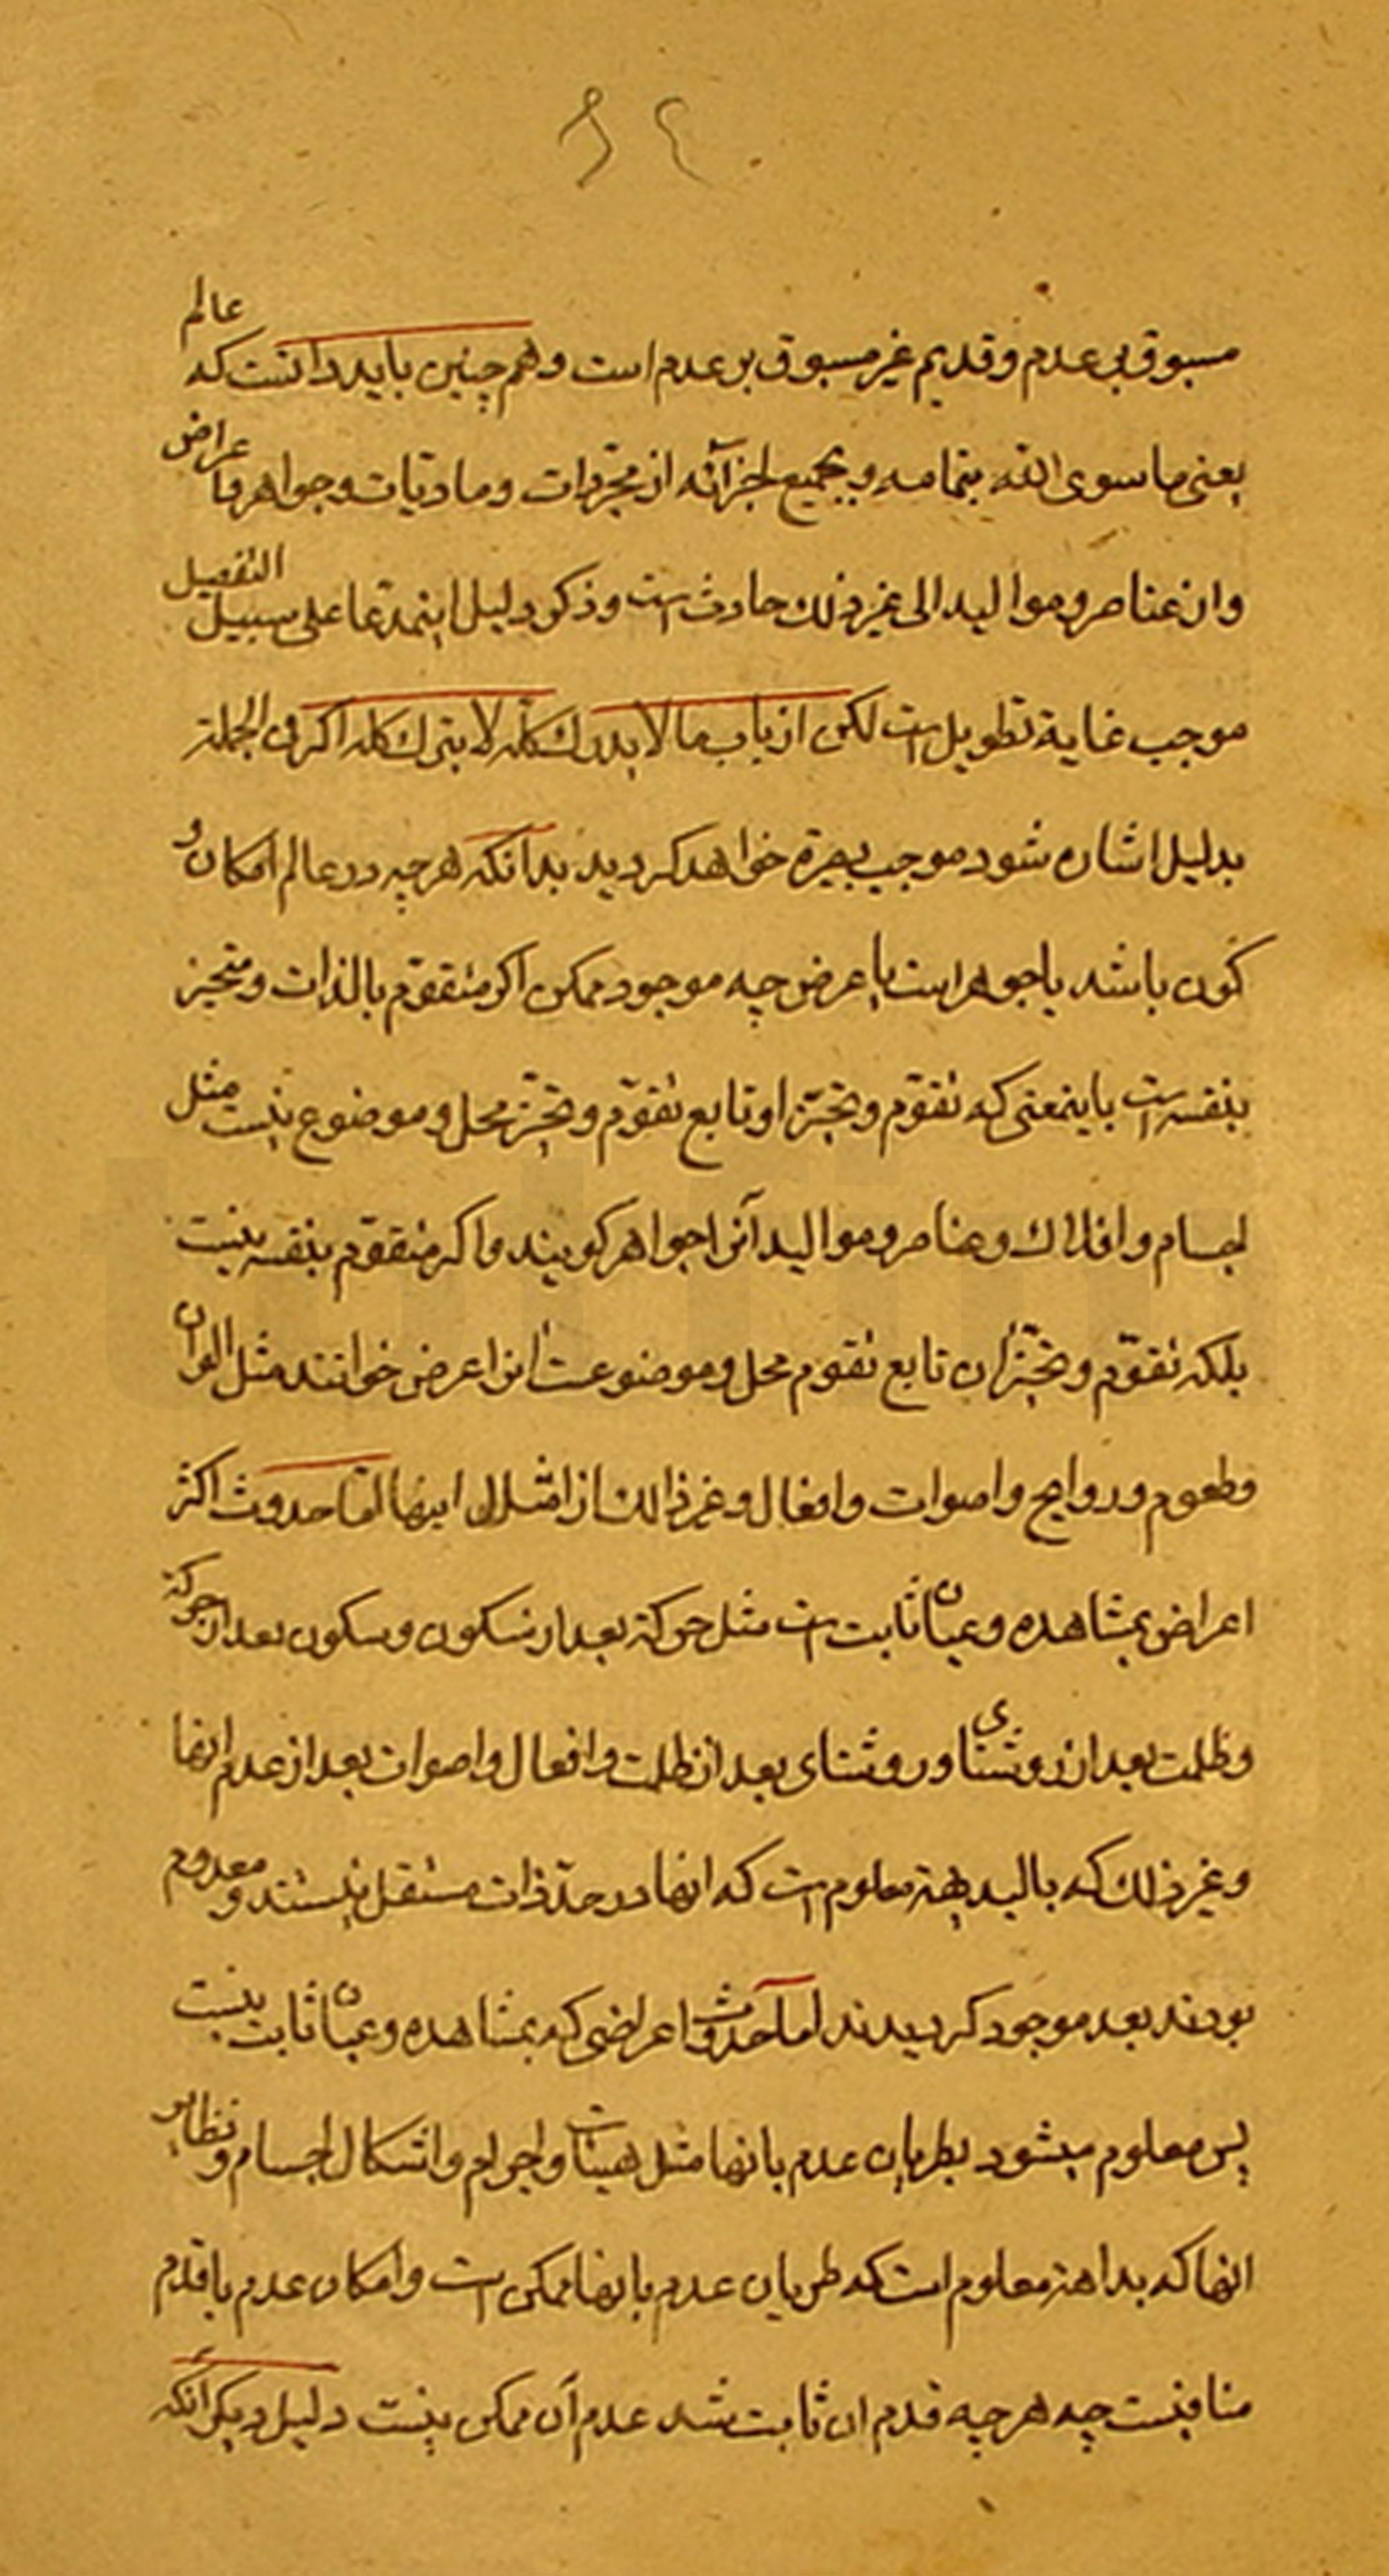 ۶۴
مسبوق بی عدم و قدیم غیر مسبوق بر عدم است و هم چنین باید دانست که عالم
یعنی ما سوی الله بتمامه و بجمیع اجزائه از مجرّدات و مادّیات و جواهر و اعراض
وان عناصر و موالید الی غیر ذلك حادث است و ذکر دلیل اینمدّعا علی سبیل التفصیل
موجب غایة تطویل است لکن از باب ما لا یدرك کلّه لا یترك کله اگر فی الجملة
بدلیل اشاره شود موجب بصیرة خواهد کردید بدآنکه هر چه در عالم امکان و
کون باشد یا جوهر است یا عرض چه موجود ممکن اگر متقوّم بالذات و متحیز
بنفسه است باینمعنی که تقوّم و تحیّز او تابع تقوّم و تحیّز محل و موضوع نیست مثل
اجسام و افلاك و عناصر و موالید آنرا جواهر کویند و اگر متقوّم بنفسه نیست
بلکه تقوّم و تحیّز ان تابع تقوم محل و موضوعست انرا عرض خوانند مثل الوان
و طعوم و روایح و اصوات و افعال و غیر ذالك از امثال اینها امّا حدوث اکثر
اعراض بمشاهده و عیان ثابت است مثل حرکة بعد از سکون و سکون بعد از حرکة
و ظلمت بعد از روشنای و روشنای بعد از ظلمت و افعال و اصوات بعد از عدم انها
و غیر ذلك که بالبدیهة معلوم است که انها در حدّ ذات مستقل نیستند و معدوم
بودند بعد موجود کردیدند امّا حدوث اعراضی که بمشاهده و عیان ثابت نیست
پس معلوم میشود بطریان عدم بانها مثل هیئات و اجرام و اشکال اجسام و نظایر
انها که بداهة معلوم است که طریان عدم بانها ممکن است و امکان عدم با قدم
منافیست چه هر چه قدم ان ثابت شد عدم آن ممکن نیست دلیل دیکر آنکه